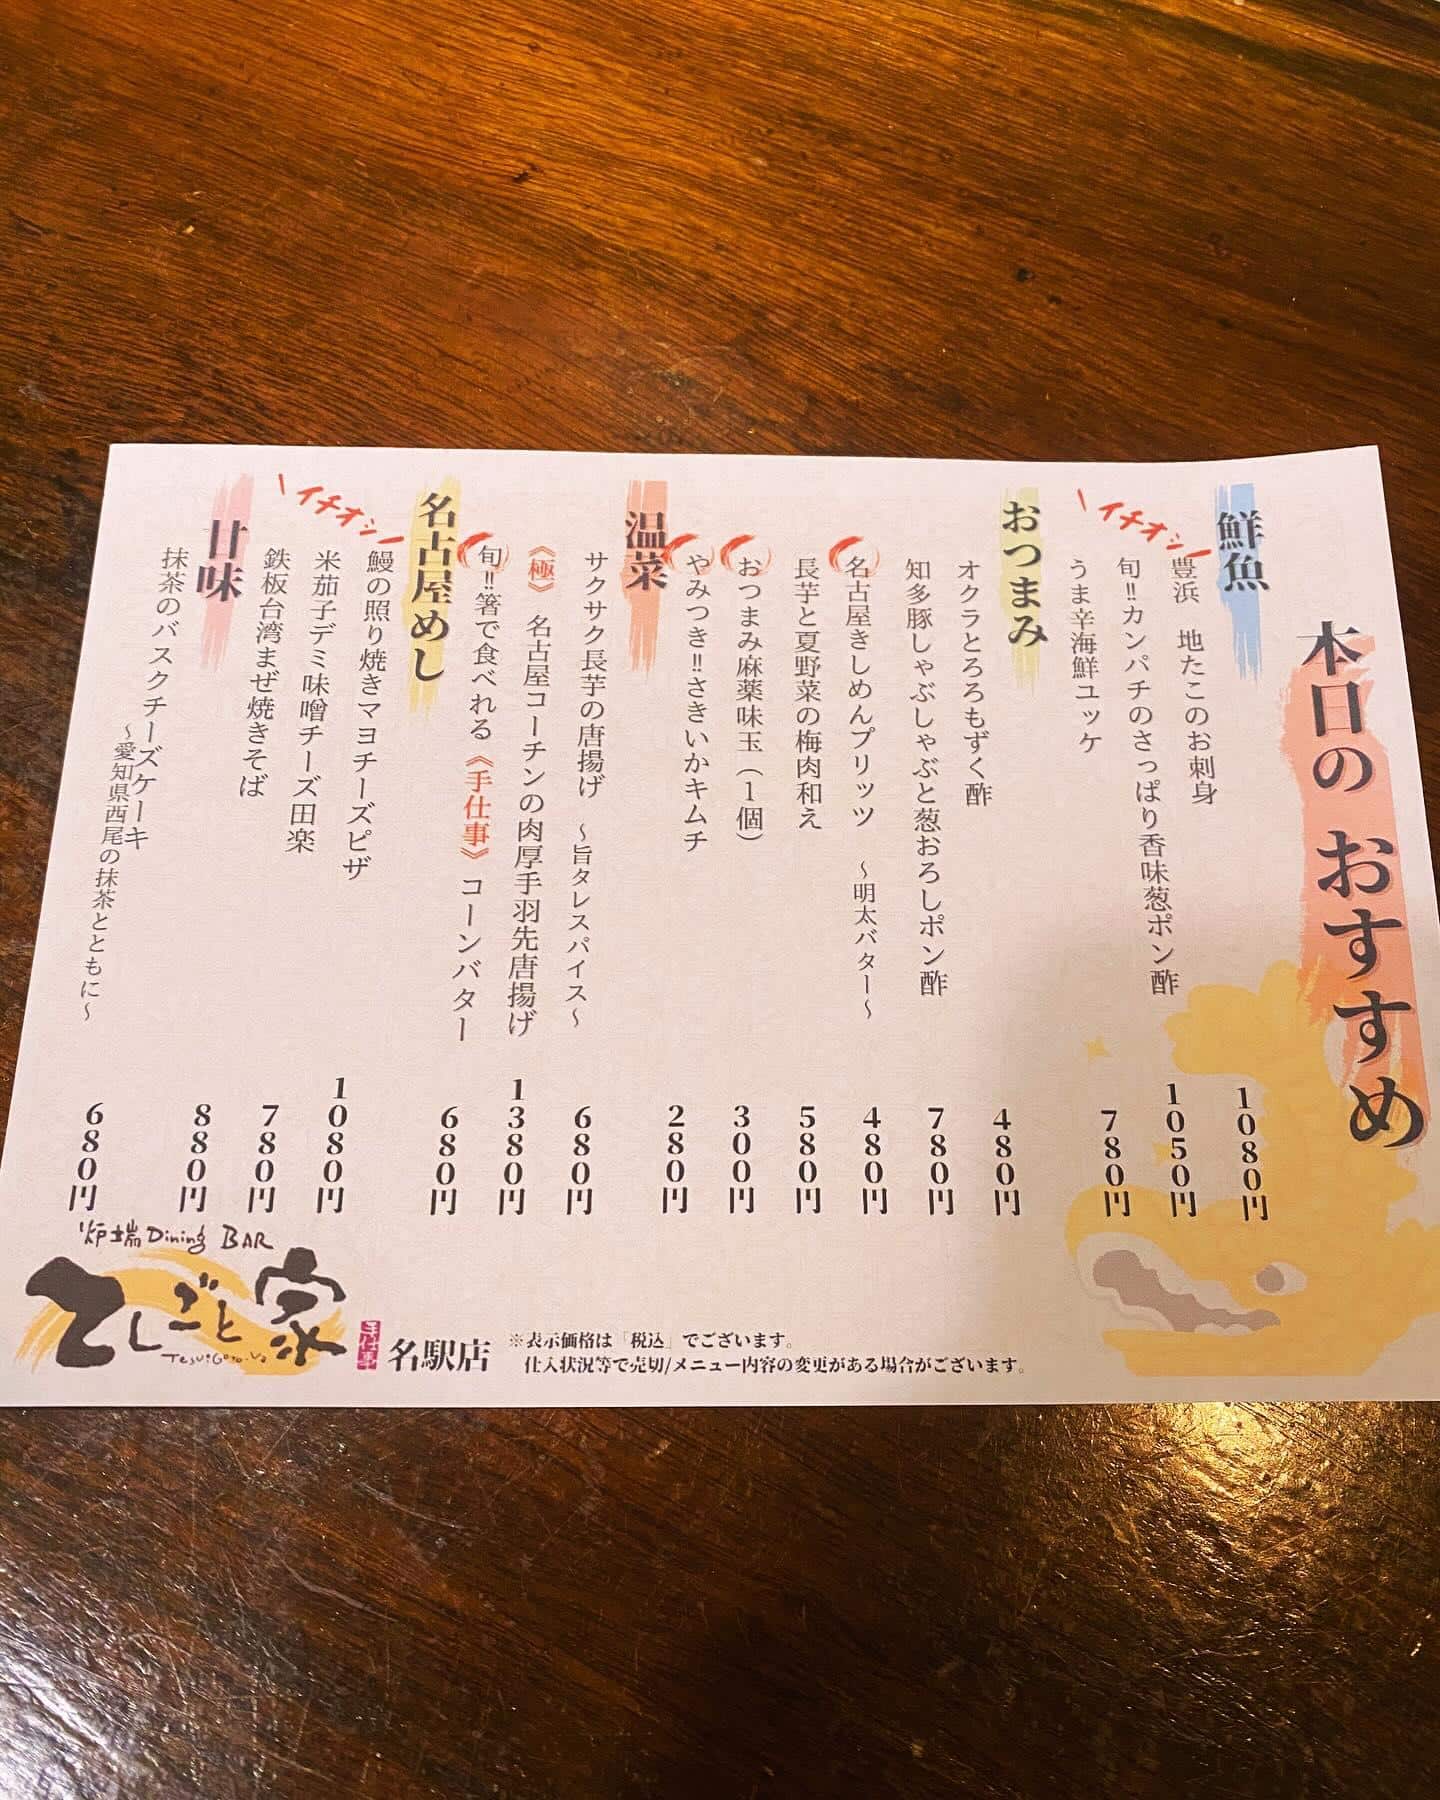 本日の おすすめ
鮮魚
豊浜 地たこのお刺身 1080円
イチオシ
旬!!カンパチのさっぱり香味葱ポン酢 1050円
うま辛海鮮ユッケ 780円
おつまみ
オクラとろろもずく酢 480円
知多豚しゃぶしゃぶと葱おろしポン酢 780円
名古屋きしめんプリッツ ~明太バター~ 480円
長芋と夏野菜の梅肉和え 580円
おつまみ麻薬味玉(1個) 300円
やみつき!!さきいかキムチ 280円
温菜
サクサク長芋の唐揚げ ~旨タレスパイス~ 680円
《極》 名古屋コーチンの肉厚手羽先唐揚げ 1380円
旬!!箸で食べれる《手仕事》コーンバター 680円
名古屋めし
鰻の照り焼きマヨチーズピザ 1080円
イチオシ
米茄子デミ味噌チーズ田楽 780円
鉄板台湾まぜ焼きそば 880円
甘味
抹茶のバスクチーズケーキ 680円
~愛知県西尾の抹茶とともに~
炉端Dining BAR
てしごと家
手仕事
名駅店
※表示価格は「税込」でございます。
仕入状況等で売切/メニュー内容の変更がある場合がございます。